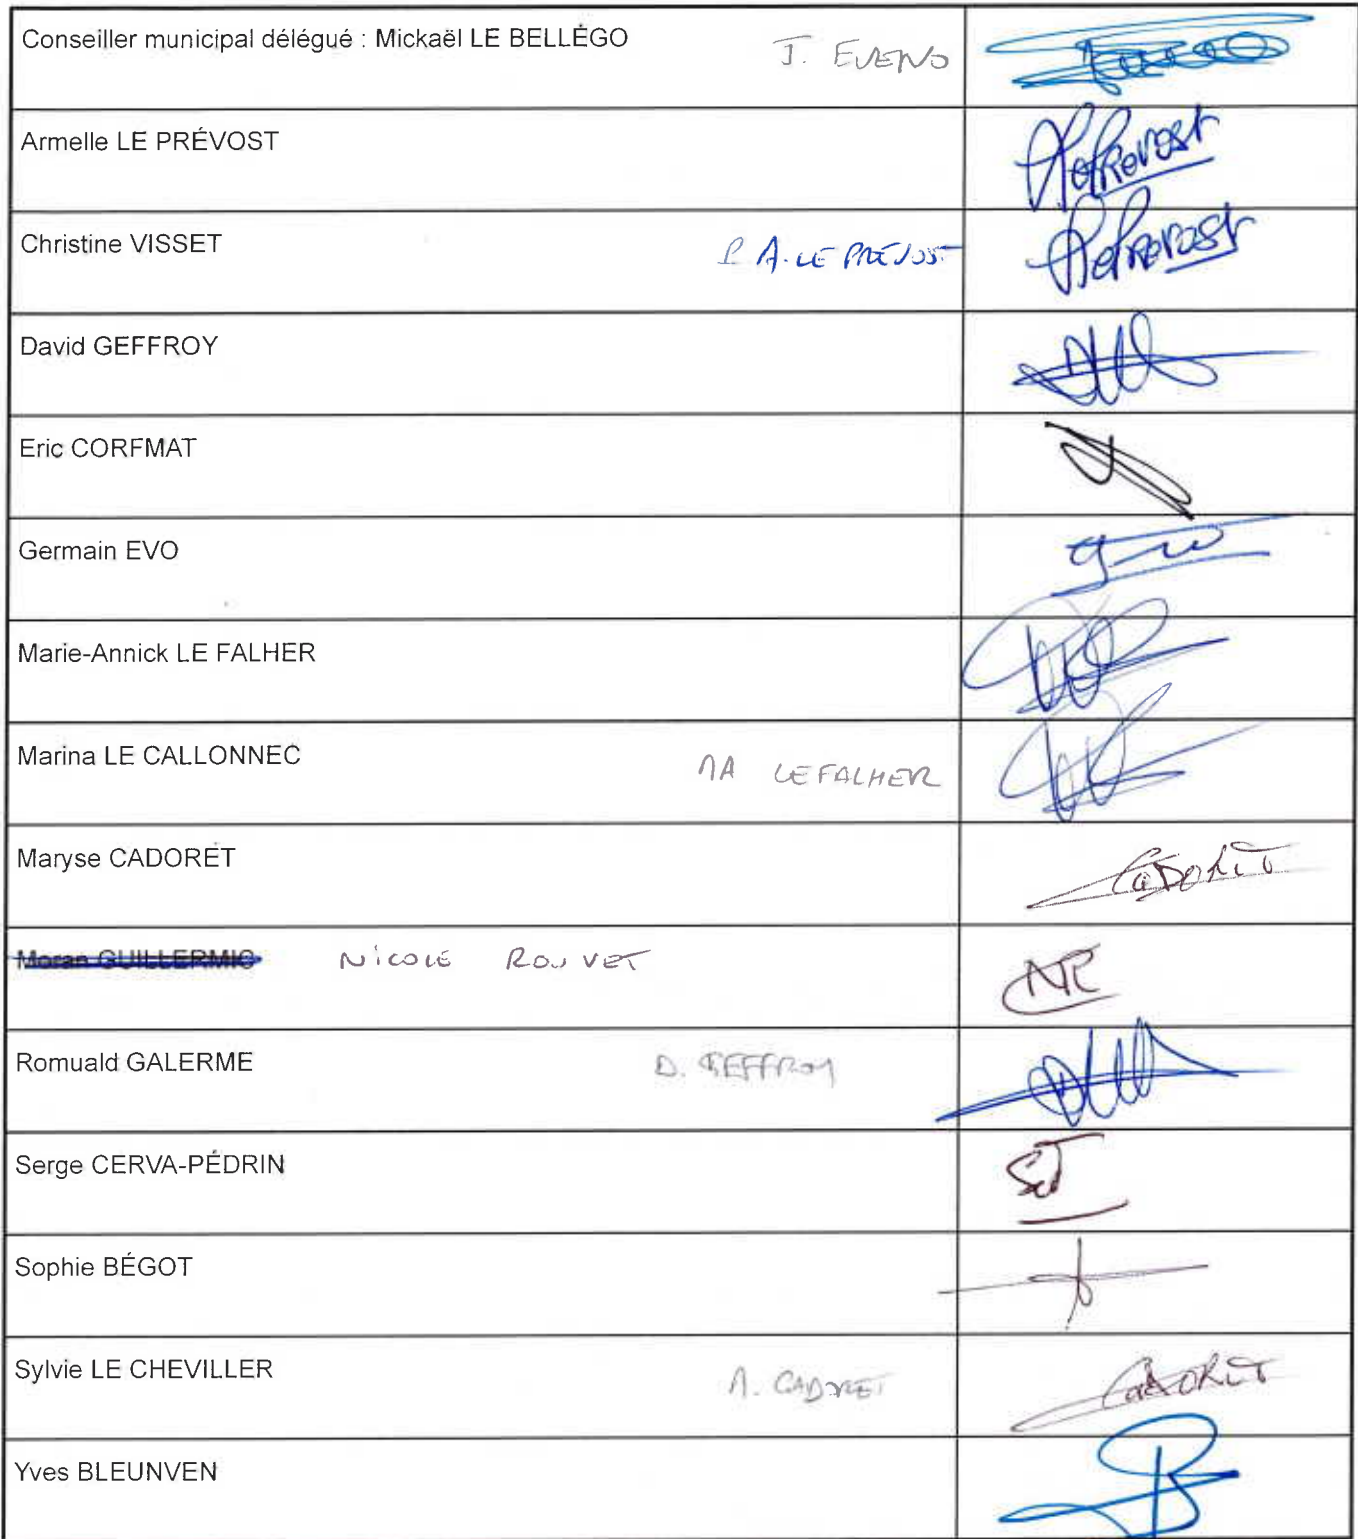 Conseiller municipal délégué : Mickaël LE BELLÉGO J. EVENO
Armelle LE PRÉVOST LePrevost
Christine VISSET P A. LE PRÉVOST LePrevost
David GEFFROY
Eric CORFMAT
Germain EVO
Marie-Annick LE FALHER
Marina LE CALLONNEC MA LE FALHER
Maryse CADORET CADORET
Moran GUILLERMIC NICOLE ROUVET NR
Romuald GALERME D. GEFFROY
Serge CERVA-PÉDRIN
Sophie BÉGOT
Sylvie LE CHEVILLER M. CADORET CADORET
Yves BLEUNVEN